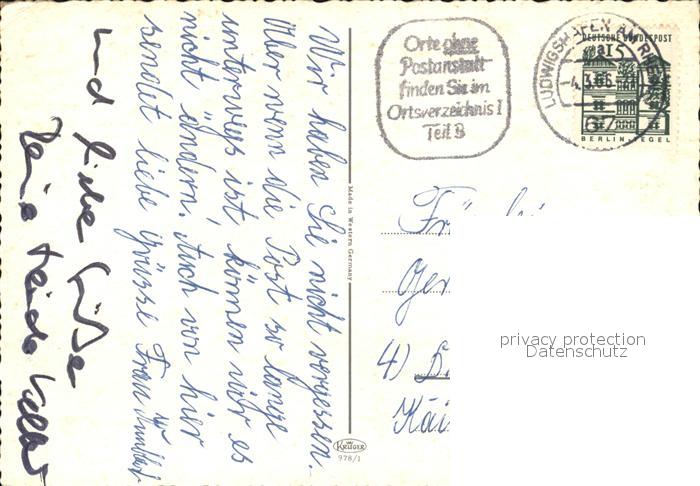 Wir haben Sie nicht vergessen.
Aber wenn die Post so lange
unterwegs ist können wir es
nicht ändern. Auch von hier
sendet liebe Grüsse Frau
und liebe Grüße
Made in Western Germany
KRÜGER
978/1
Orte ohne
Postanstalt
finden Sie im
Ortsverzeichnis I
Teil B
LUDWIGSHAFEN AM RHEIN
-4.3.66
DEUTSCHE BUNDESPOST
15
BERLIN-TEGEL
4)
privacy protection
Datenschutz